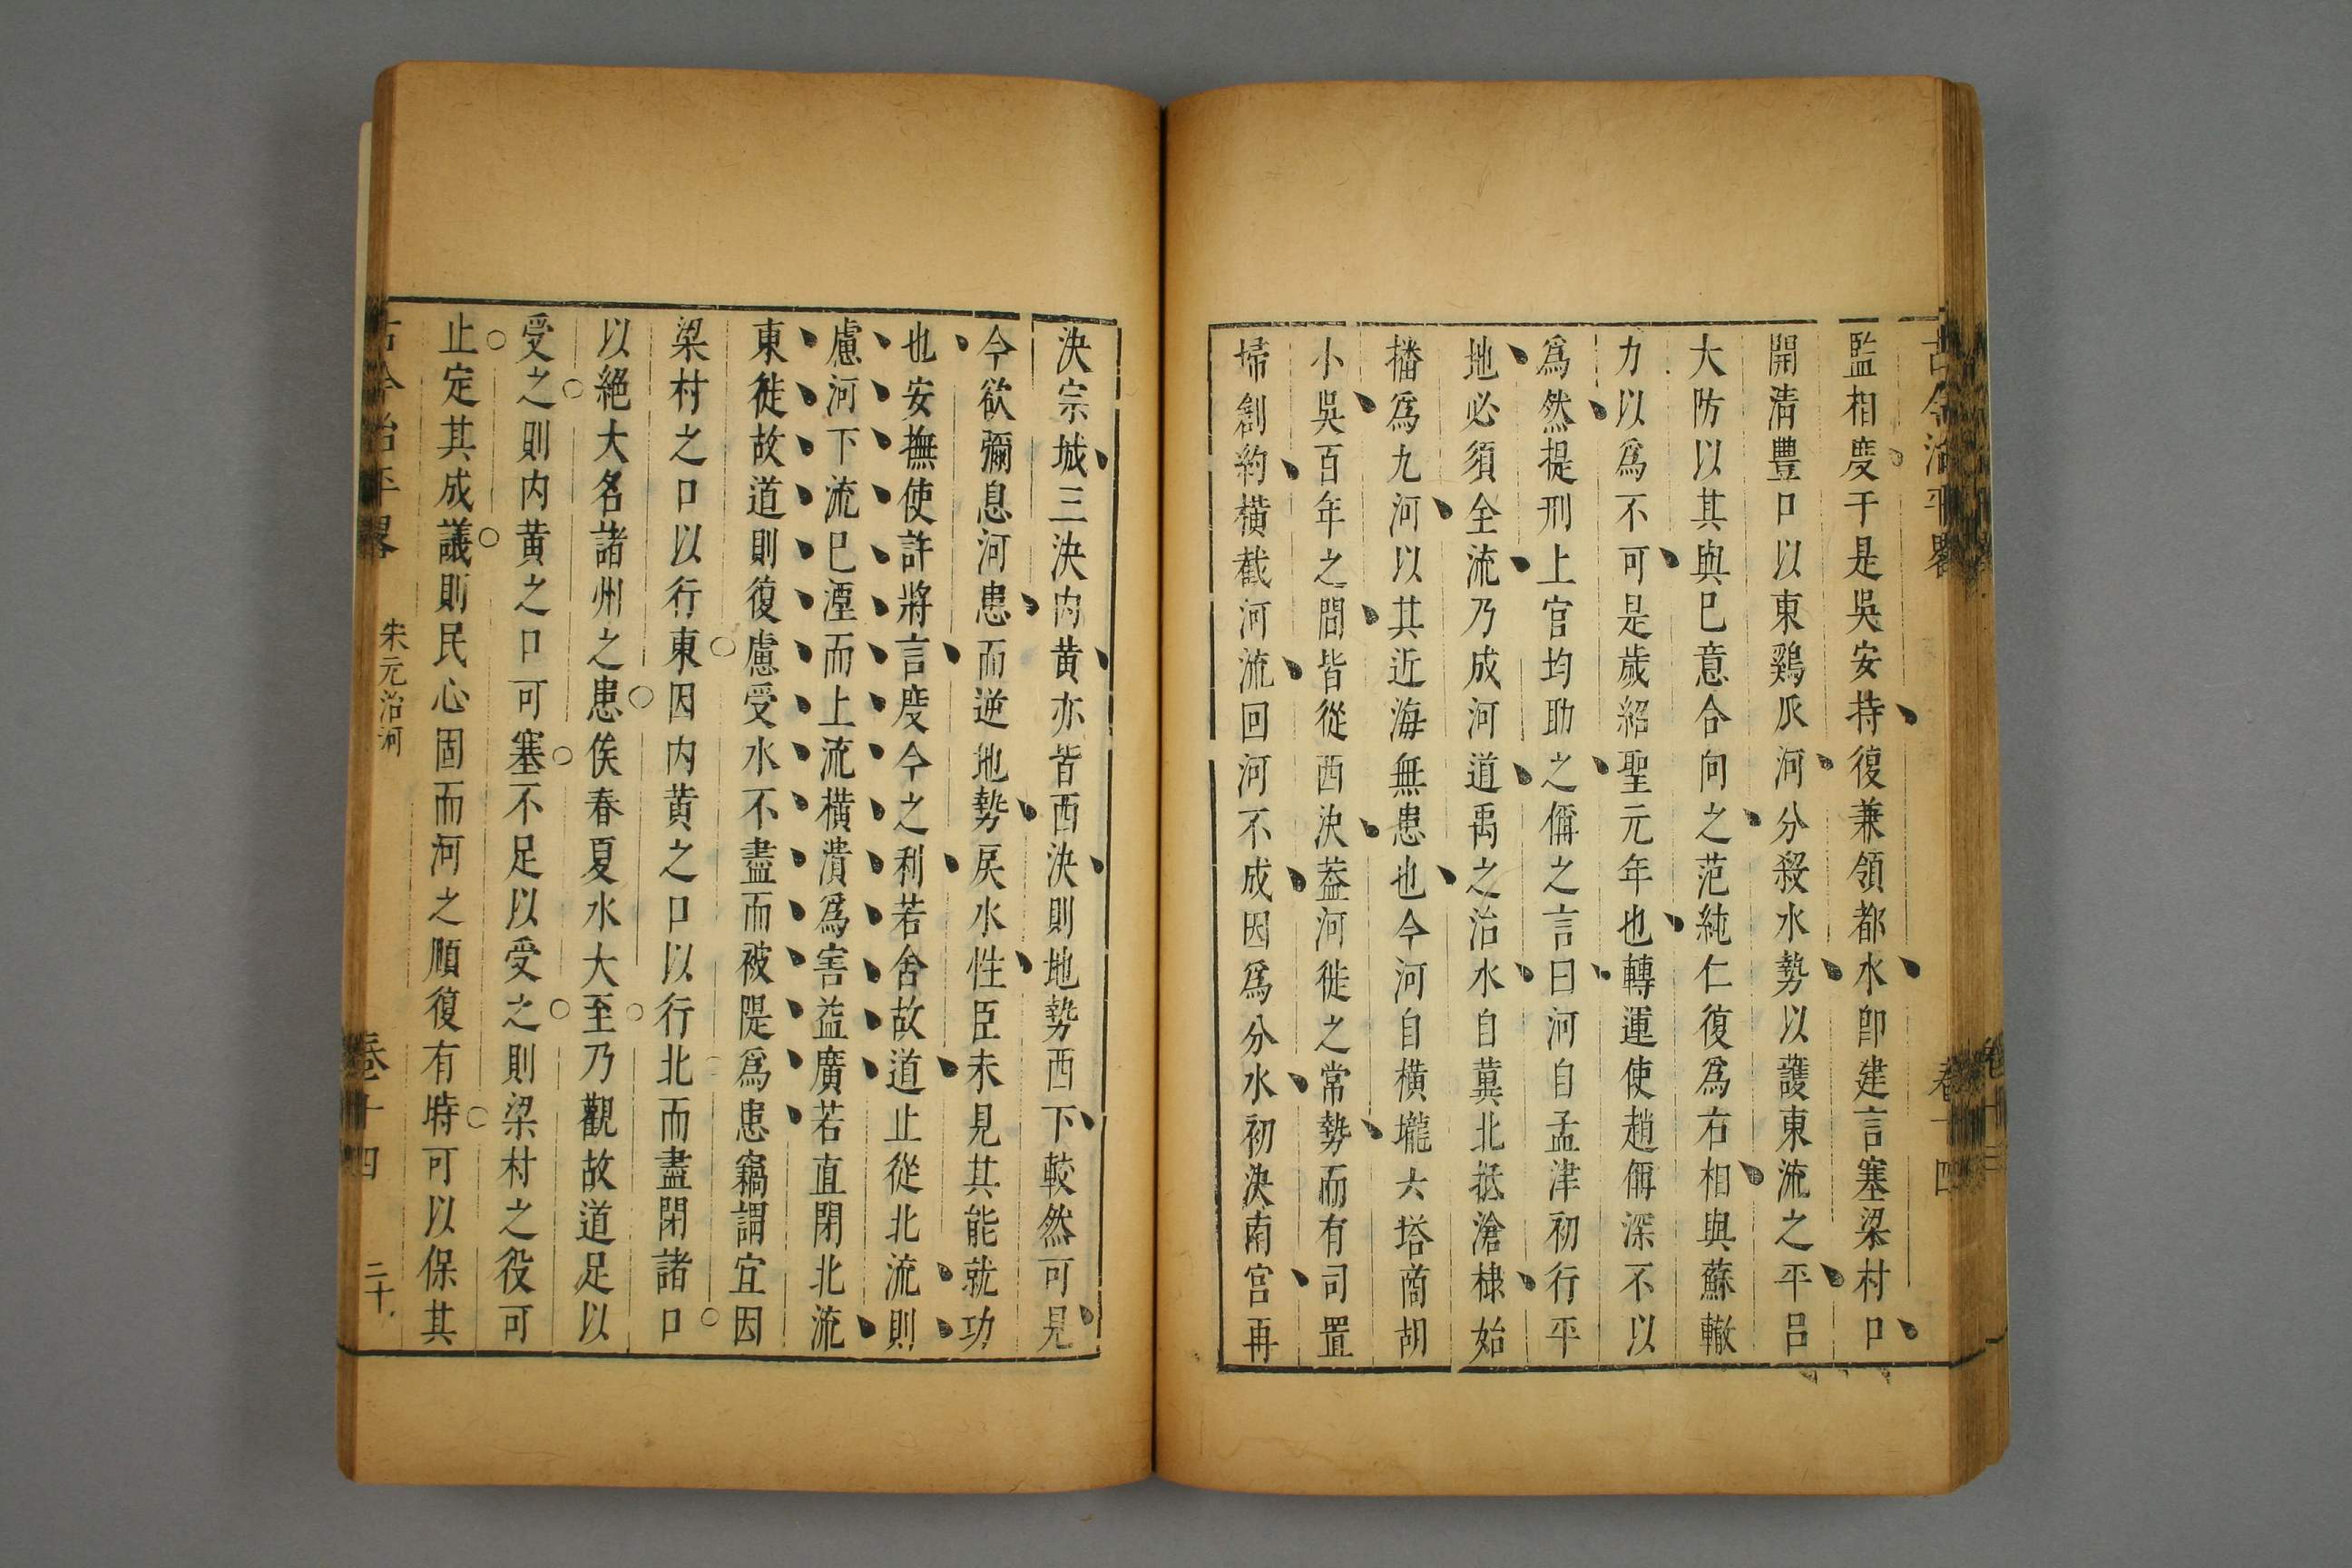 古今治平畧 卷十四
監相度于是吳安持復兼領都水卽建言塞梁村口
開清豐口以東雞爪河分殺水勢以護東流之平呂
大防以其與已意合向之范純仁復為右相與蘇轍
力以為不可是歲紹聖元年也轉運使趙偁深不以
爲然提刑上官均助之偁之言曰河自孟津初行平
地必須全流乃成河道禹之治水自冀北抵滄棣始
播爲九河以其近海無患也今河自橫壠六塔商胡
小吳百年之間皆從西決葢河徙之常勢而有司置
埽創約橫截河流回河不成因爲分水初決南宫再
決宗城三決内黄亦皆西決則地勢西下較然可見
今欲彌息河患而逆地勢戾水性臣未見其能就功
也安撫使許將言度今之利若舍故道止從北流則
慮河下流已湮而上流橫潰爲害益廣若直閉北流
東徙故道則復慮受水不盡而被隄爲患竊謂宜因
梁村之口以行東因内黄之口以行北而盡閉諸口
以絕大名諸州之患俟春夏水大至乃觀故道足以
受之則内黄之口可塞不足以受之則梁村之役可
止定其成議則民心固而河之順復有時可以保其
古今治平畧 朱元治河 卷十四 二十